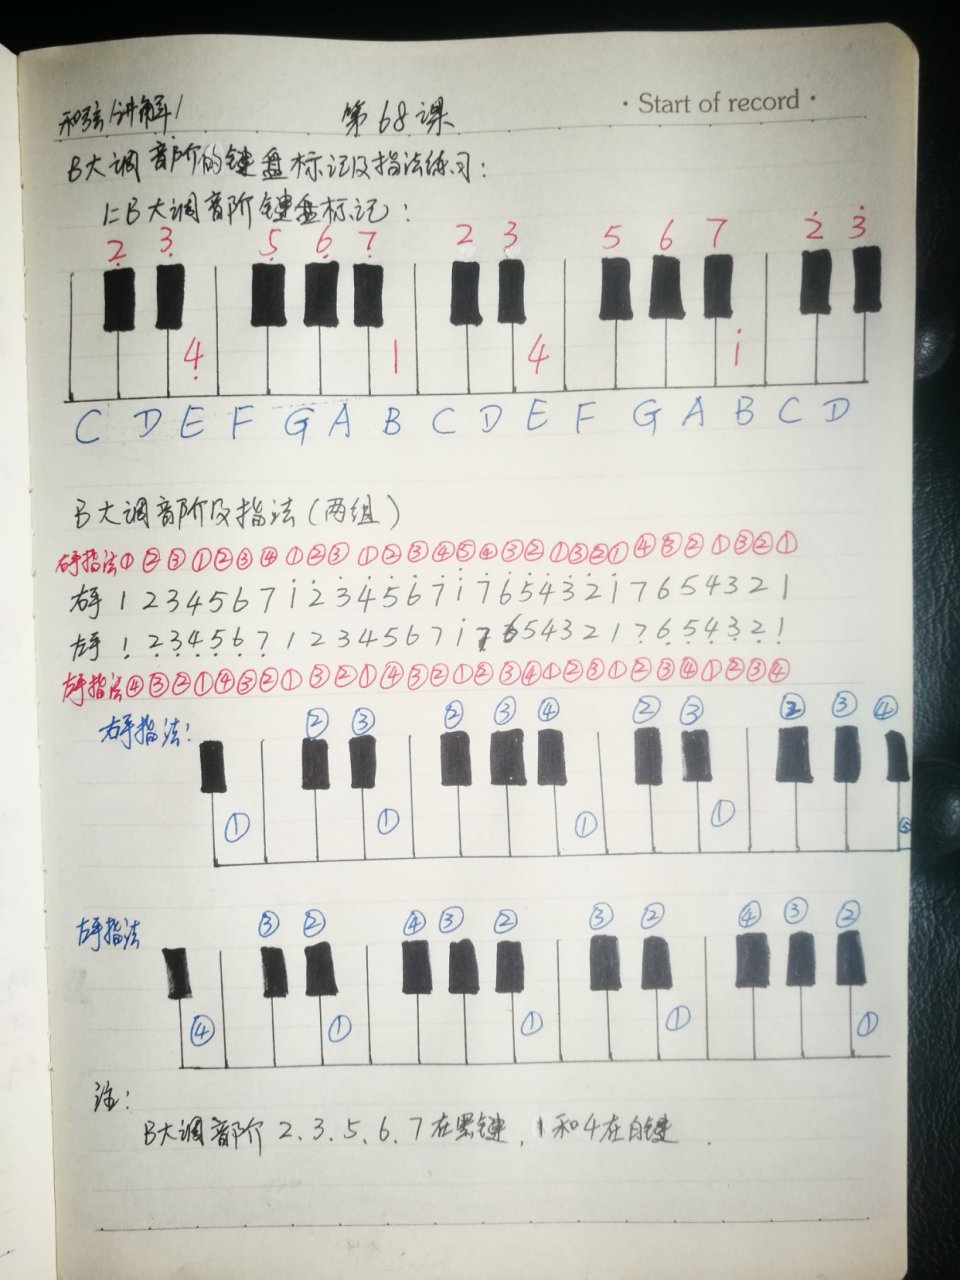 和弦讲解1 第68课 · Start of record ·
B大调音阶的键盘标记及指法练习:
1:B大调音阶键盘标记:
2̣ 3̣ 5̣ 6̣ 7̣ 2 3 5 6 7 2̇ 3̇
4̣ 1 4 i
C D E F G A B C D E F G A B C D
B大调音阶及指法(两组)
右手指法①②③①②③④①②③①②③④⑤④③②①③②①④③②①③②①
右手 1 2 3 4 5 6 7 1̇ 2̇ 3̇ 4̇ 5̇ 6̇ 7̇ i̇ 7̇ 6̇ 5̇ 4̇ 3̇ 2̇ 1̇ 7 6 5 4 3 2 1
左手 1̣ 2̣ 3̣ 4̣ 5̣ 6̣ 7̣ 1 2 3 4 5 6 7 i 7 6 5 4 3 2 1 7̣ 6̣ 5̣ 4̣ 3̣ 2̣ 1̣
左手指法④③②①④③②①③②①④③②①②③④①②③①②③④①②③④
右手指法: ② ③ ② ③ ④ ② ③ ② ③ ④
① ① ① ① ⑤
左手指法 ③ ② ④ ③ ② ③ ② ④ ③ ②
④ ① ① ① ①
注:
B大调音阶 2、3、5、6、7在黑键,1和4在白键.